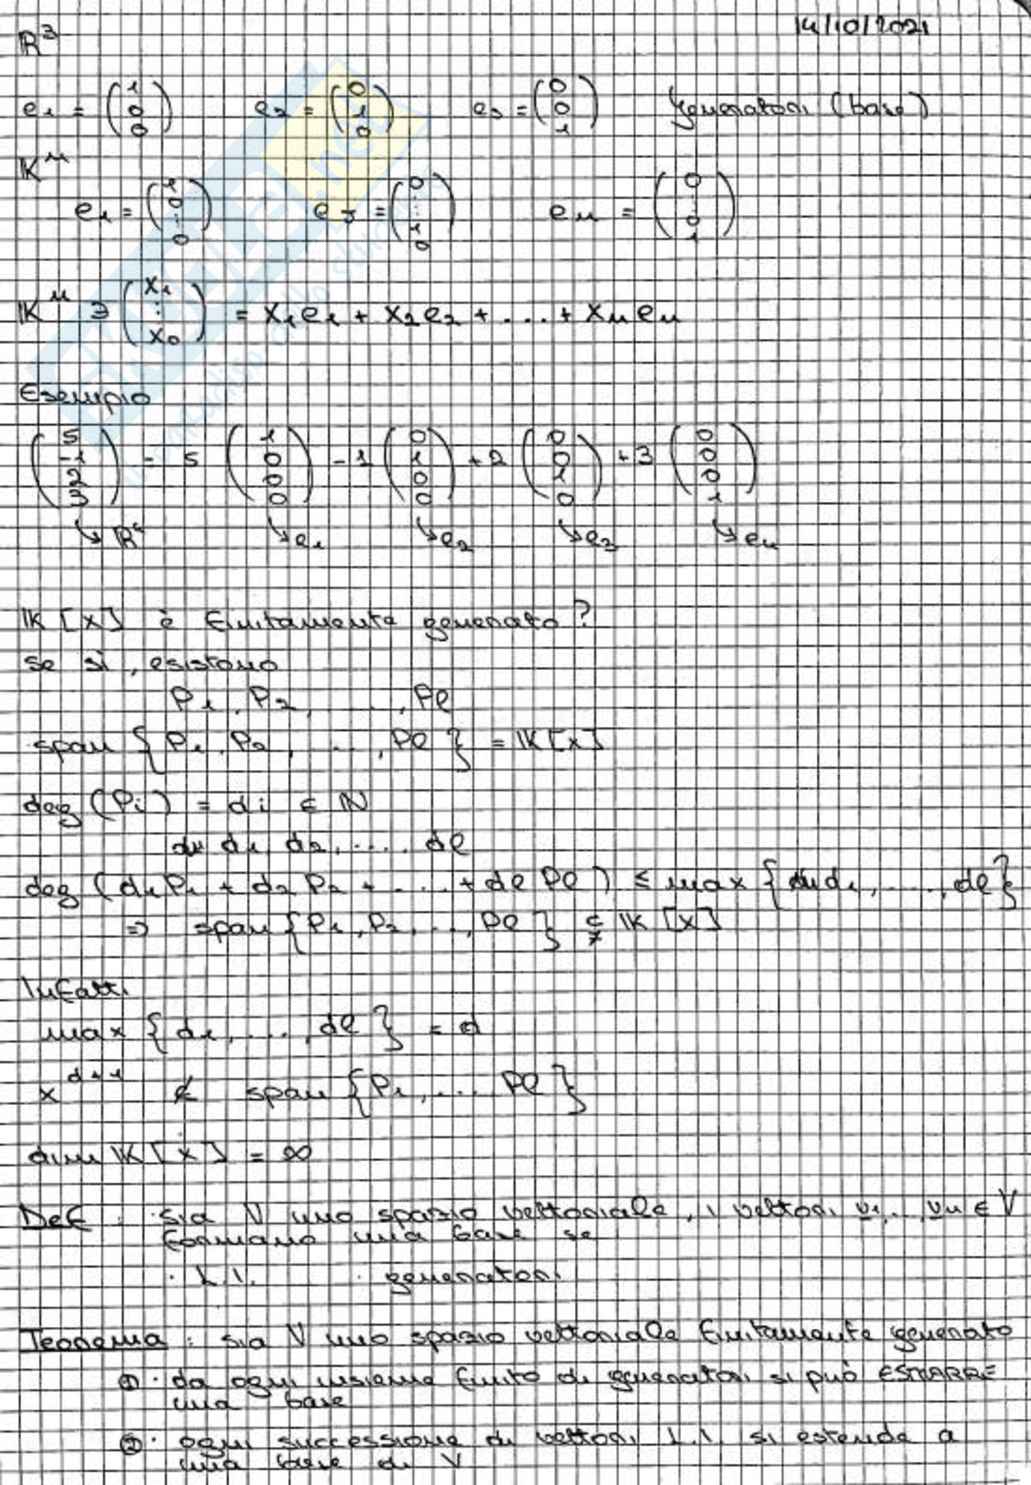 14/10/2021
R³
e₁ = (1 0 0) e₂ = (0 1 0) e₃ = (0 0 1) generatori (base)
Kⁿ
e₁ = (1 0 ... 0) eⱼ = (0 ... 1 0) eₙ = (0 ... 0 1)
Kⁿ ∋ (x₁ ⋮ x₀) = x₁e₁ + x₂e₂ + .... + xₙeₙ
Esempio
(5 -1 2 3) = 5 (1 0 0 0) - 1 (0 1 0 0) + 2 (0 0 1 0) + 3 (0 0 0 1)
↳ R⁴ ↳ e₁ ↳ e₂ ↳ e₃ ↳ e₄
K[x] è finitamente generato?
se sì, esistono
P₁, P₂, ...., Pℓ
span {P₁, P₂, ...., Pℓ} = K[x]
deg (Pi) = di ∈ N
d₁, d₂, .... dℓ
deg (α₁P₁ + α₂P₂ + .... + αℓPℓ) ≤ max {d₁, ...., dℓ}
⇒ span {P₁, P₂, ..., Pℓ} ⊊ K[x]
Infatti
max {d₁, ...., dℓ} = d
x^d+1 ∉ span {P₁, .... Pℓ}
dim K[x] = ∞
Def : sia V uno spazio vettoriale, i vettori v₁, ..., vₙ ∈ V
formano una base se
· L.I. · generatori
Teorema : sia V uno spazio vettoriale finitamente generato
① · da ogni insieme finito di generatori si può ESTRARRE
una base
② · ogni successione di vettori L.I. si estende a
una base di V